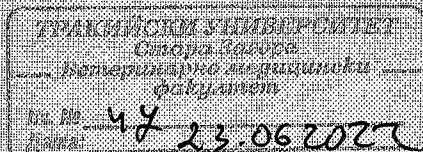 ТРАКИЙСКИ УНИВЕРСИТЕТ
Стара Загора
Ветеринарно медицински
факултет
Вх. №
23.06 2022